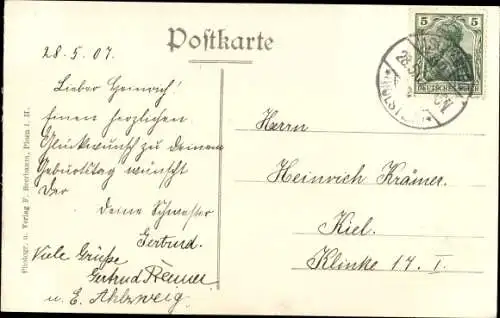 28.5.07.
Postkarte
5
5
DEUTSCHES REICH
Lieber Heinrich!
Einen herzlichen
Glückwunsch zu deinem
Geburtstag wünscht
Der
deine Schwester
Gertrud.
Viele Grüße
Gertrud
u. E. Ahlzweig.
Herrn
Heinrich Krämer.
Kiel.
Klinke 17. I.
Photogr. u. Verlag F. Beermann, Ploen i. H.